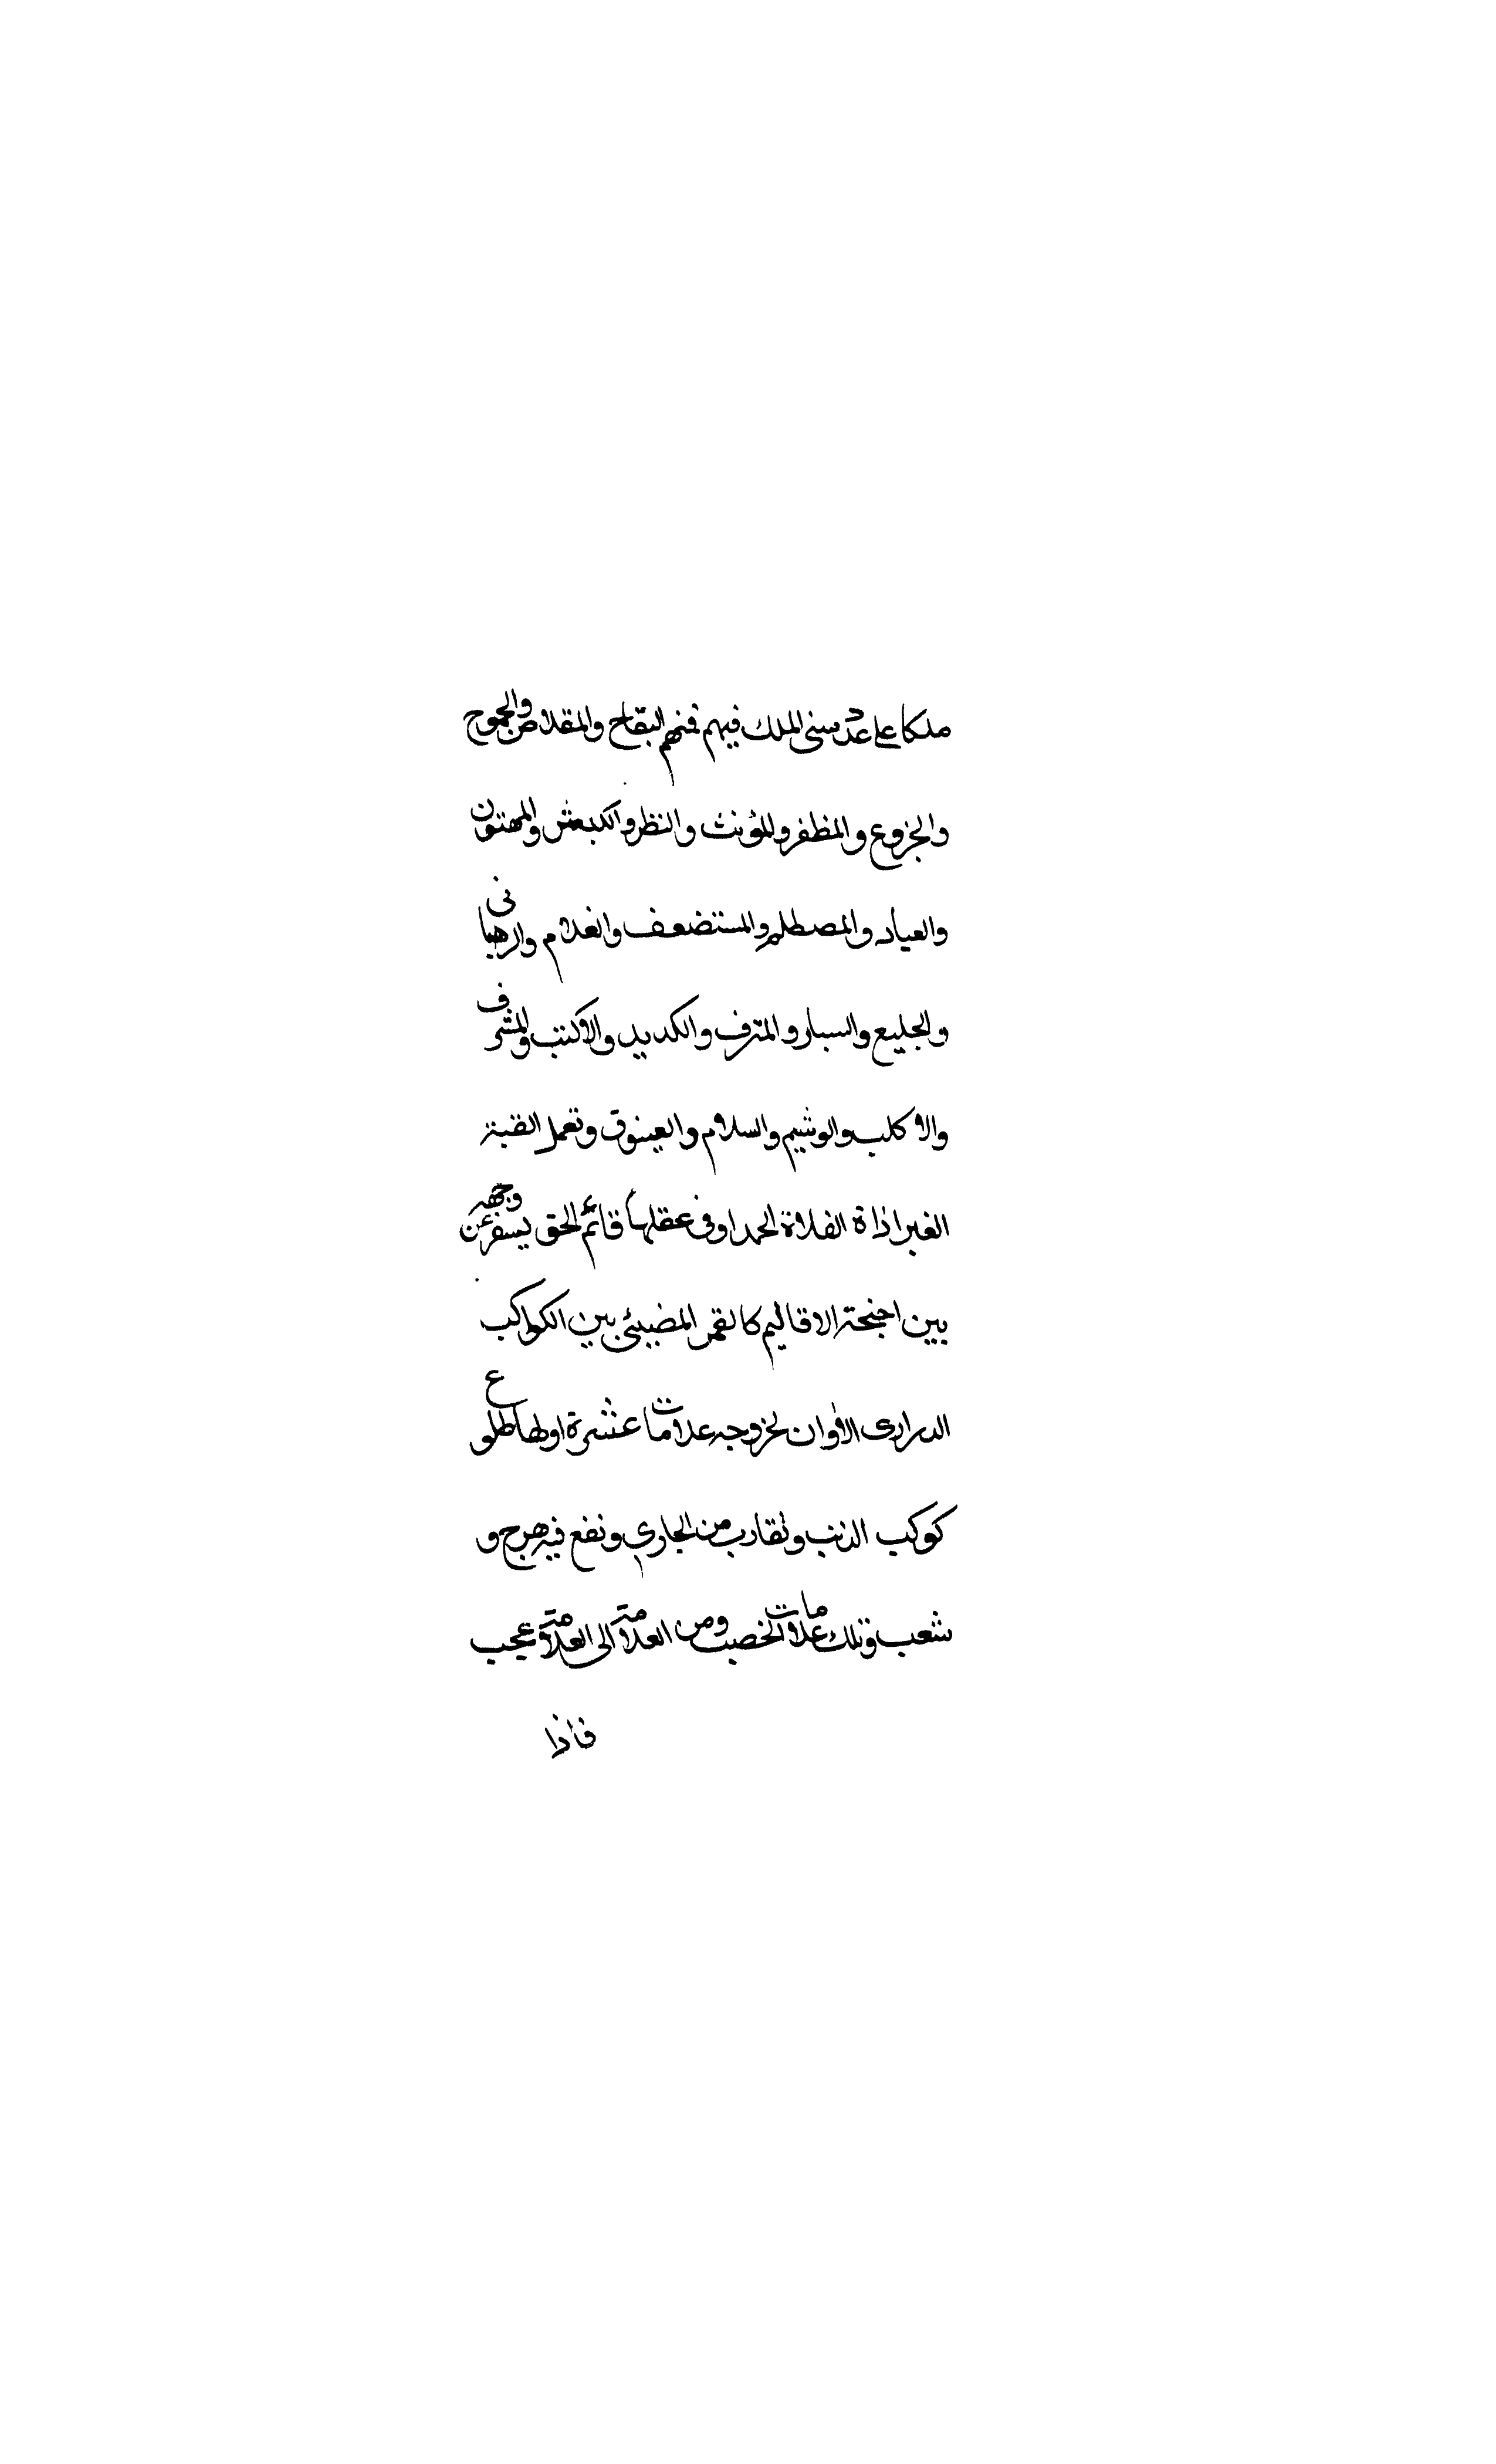 ملكا على عدد سنى الملك فيهم فمنهم البقاح والمقلاص والجموح
والجزوع والمظفر والمؤنث والنظر والكبعش والمهتون
والعياد والمصطلم والمستضعف والغلام والرهبانى
والجليع والسيار والمترف والكديد والاكتب والمشرف
والاكلب والوشيم والسلام والعينوق وتعمل القبة
الغبرا ذاة الفلاة الحمرا وفى عقلها قائم الحق يسفر عن وجهه
بين اجنحة الاقاليم كالقمر المضيئى بين الكواكب
الدرارى الا وان لخروجه علامات عشرة اولها طلوع
كوكب الذنب وتقارب من الجارى ونفع فيه هرج و
شعب وتلك علامات الخصب ومن العلامة الى العلامة عجب
فاذا